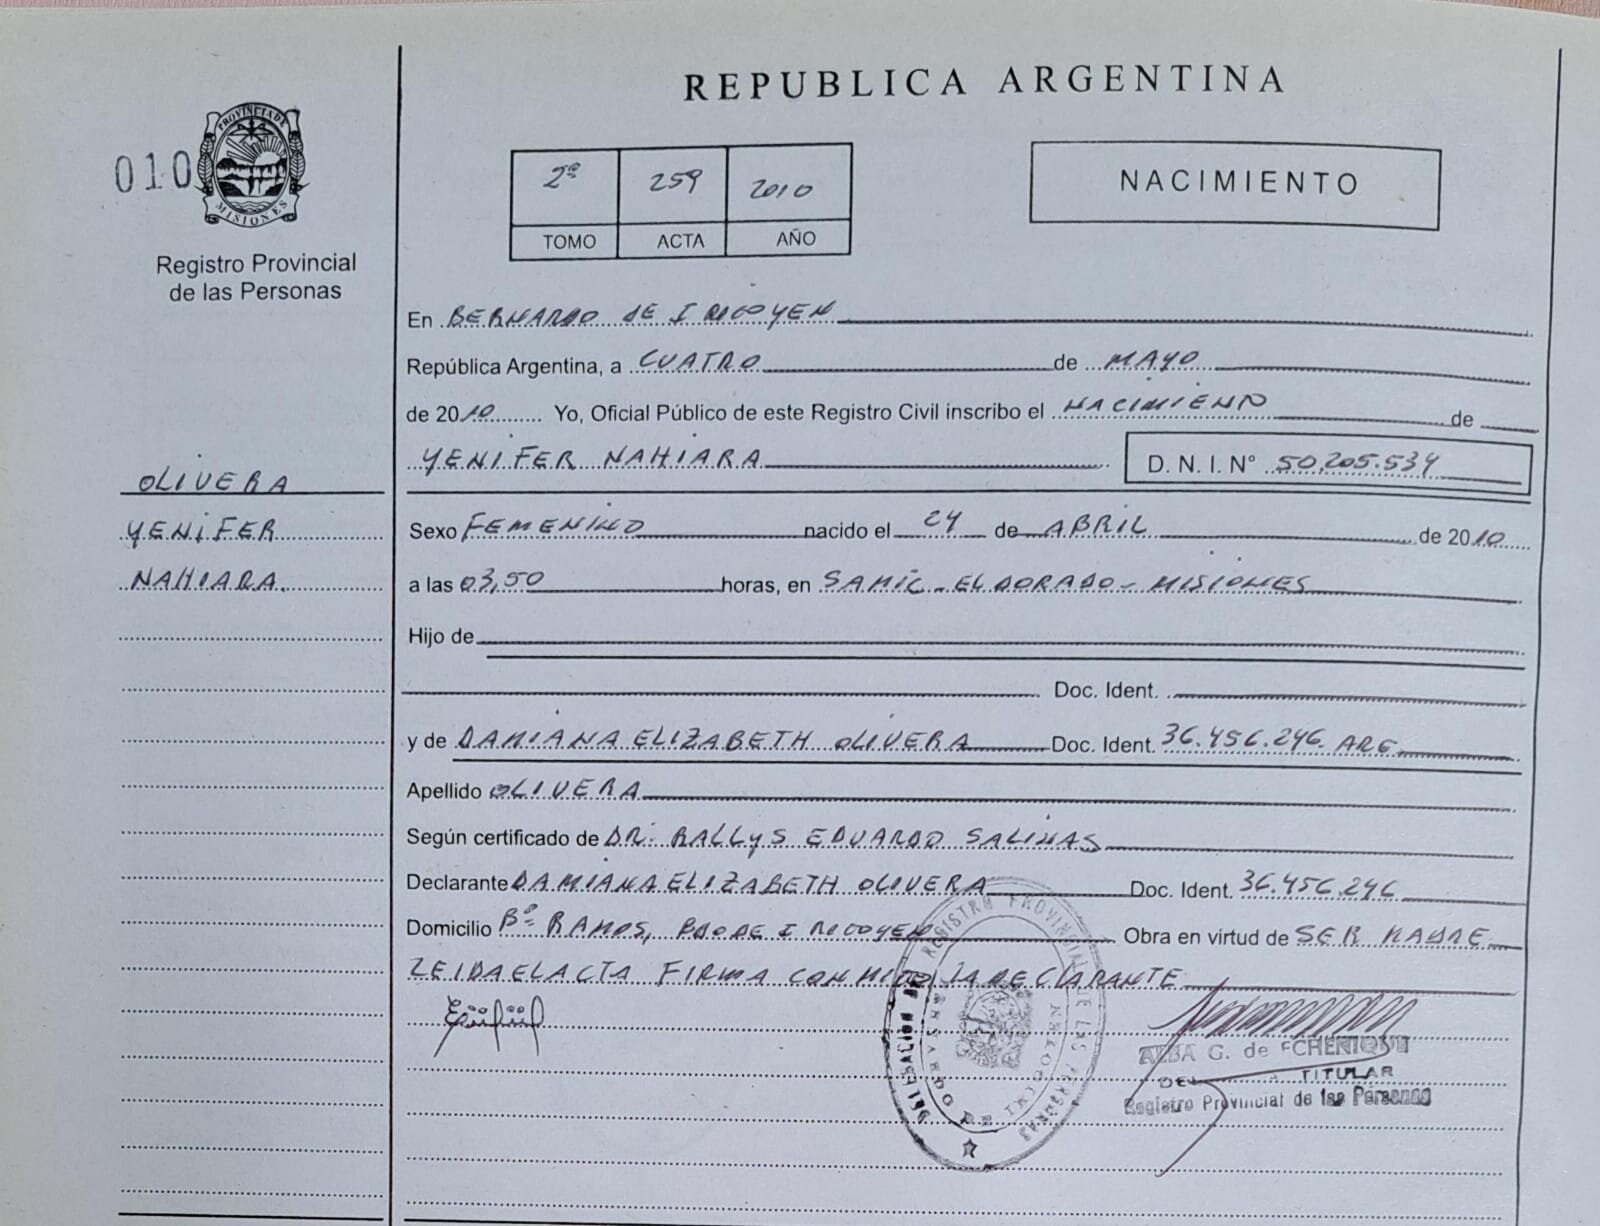 REPUBLICA ARGENTINA
010
PROVINCIA DE
MISIONES
Registro Provincial
de las Personas
2º 259 2010
TOMO ACTA AÑO
NACIMIENTO
En BERNARDO DE IRIGOYEN
República Argentina, a CUATRO de MAYO
de 2010 Yo, Oficial Público de este Registro Civil inscribo el NACIMIENTO de
YENIFER NAHIARA D. N. I. Nº 50.205.534
OLIVERA
YENIFER
NAHIARA
Sexo FEMENINO nacido el 24 de ABRIL de 2010
a las 03,50 horas, en SAMIC - ELDORADO - MISIONES
Hijo de
Doc. Ident.
y de DAMIANA ELIZABETH OLIVERA Doc. Ident. 36.456.246 ARG
Apellido OLIVERA
Según certificado de DR. RALLYS EDUARDO SALINAS
Declarante DAMIANA ELIZABETH OLIVERA Doc. Ident. 36.456.246
Domicilio Bº RAMOS, BDO DE IRIGOYEN Obra en virtud de SER MADRE
LEIDA EL ACTA FIRMA CONMIGO LA DECLARANTE
DELEGACION DEL REGISTRO PROVINCIAL DE LAS PERSONAS
BERNARDO DE IRIGOYEN
ALBA G. de ECHENIQUE
TITULAR
Registro Provincial de las Personas